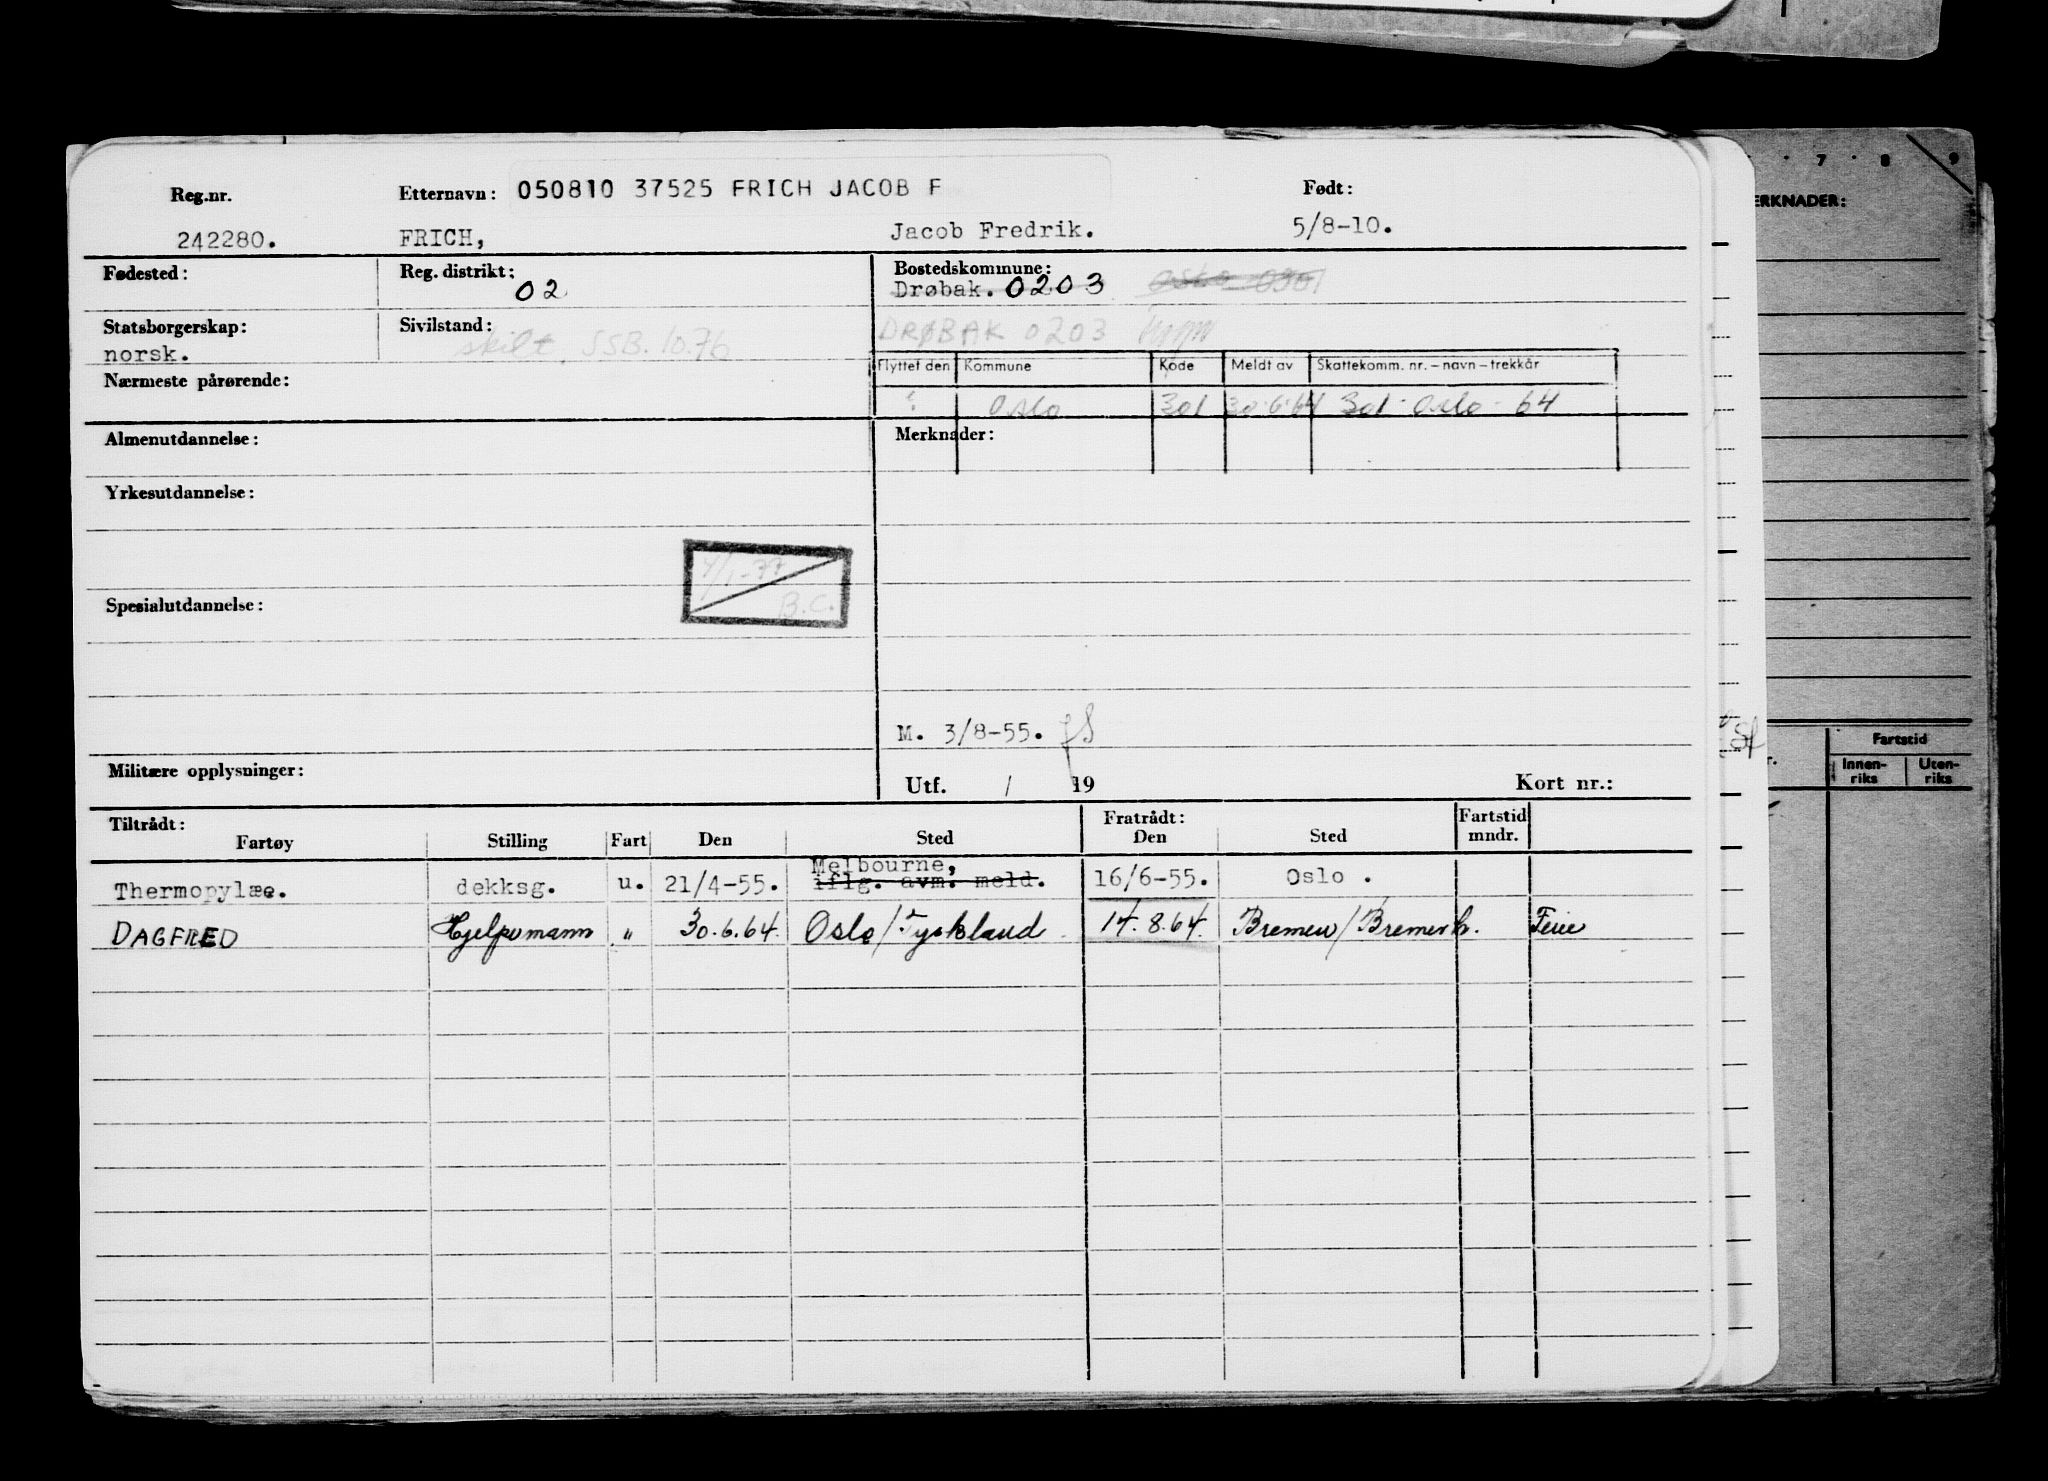 7 8 9
ERKNADER:
Reg.nr. Etternavn: 050810 37525 FRICH JACOB F Født:
242280. FRICH, Jacob Fredrik. 5/8-10.
Fødested: Reg. distrikt: 02 Bostedskommune:
Drøbak. 0203 Oslo 0301
Statsborgerskap: Sivilstand: DRØBAK 0203
norsk. skilt, SSB. 10.76
Nærmeste pårørende: Flyttet den Kommune Kode Meldt av Skattekomm. nr. – navn – trekkår
? Oslo 301 30.6.64 301 - Oslo - 64
Almenutdannelse: Merknader:
Yrkesutdannelse:
4/1-77
B.C.
Spesialutdannelse:
M. 3/8-55.
Militære opplysninger: Utf. / 19 Kort nr.:
Fartstid
Innen-riks Uten-riks
Tiltrådt: Fratrådt: Fartstid
Fartøy Stilling Fart Den Sted Den Sted mndr.
Melbourne,
Thermopylæe. dekksg. u. 21/4-55. iflg. avm. meld. 16/6-55. Oslo .
DAGFRED Hjelpemann " 30.6.64. Oslo/Tyskland. 14.8.64. Bremen/Bremerh. Feie